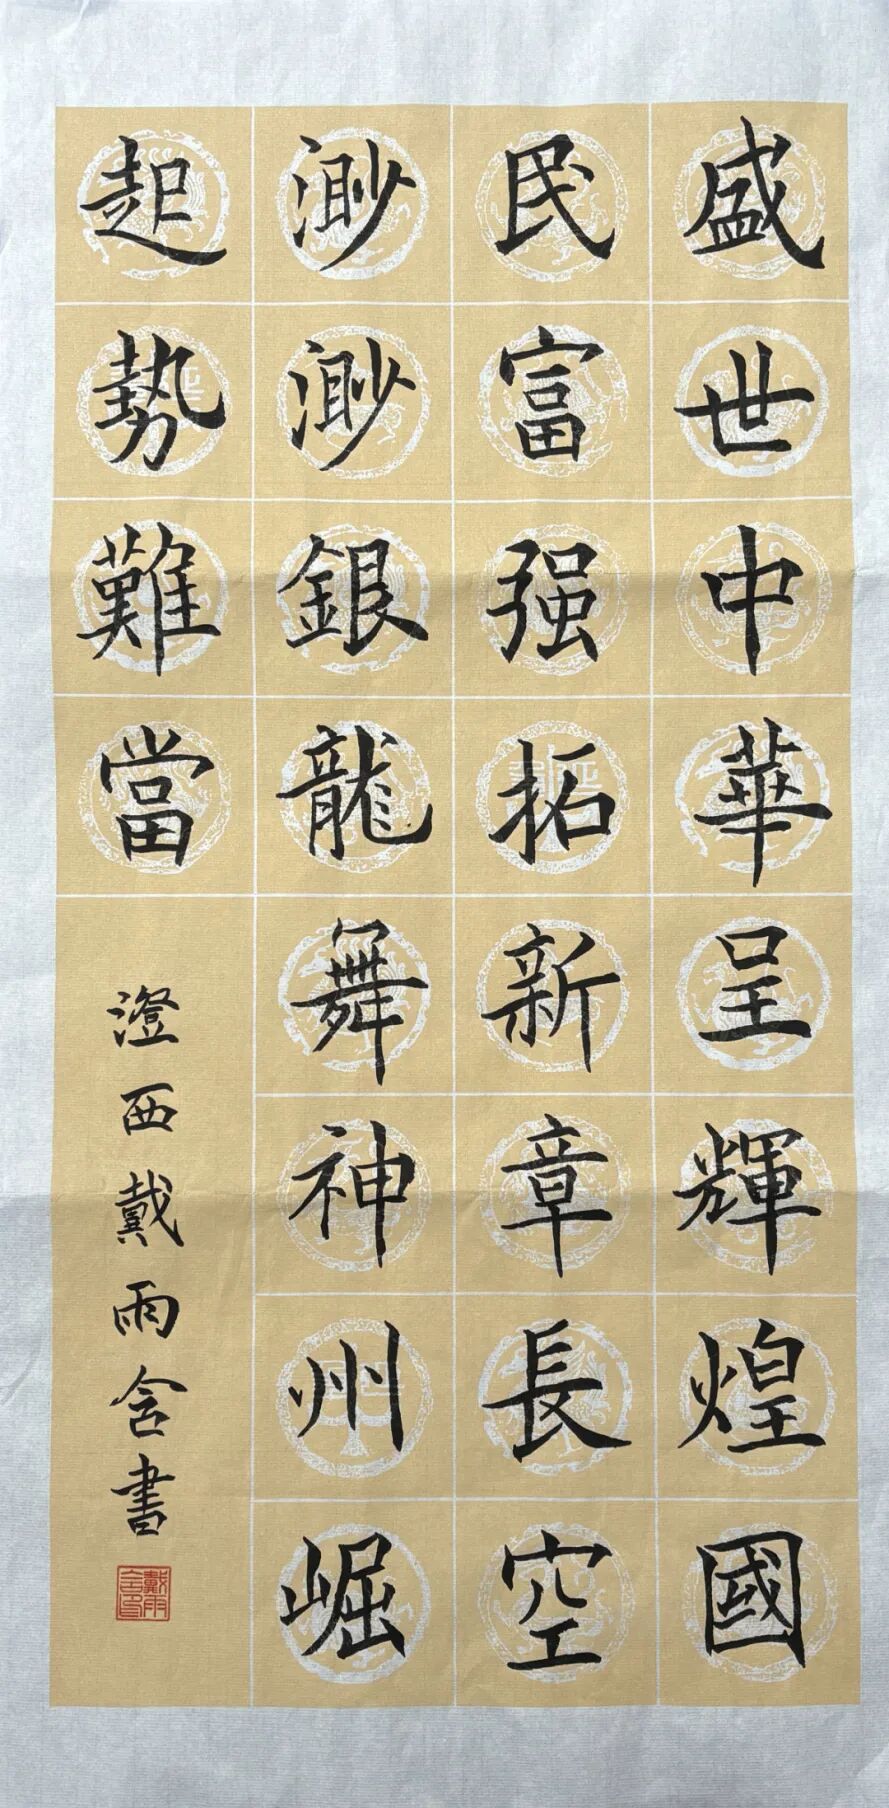 盛世中華呈輝煌國
民富强拓新章長空
渺渺銀龍舞神州崛
起勢難當
澄西戴雨含書